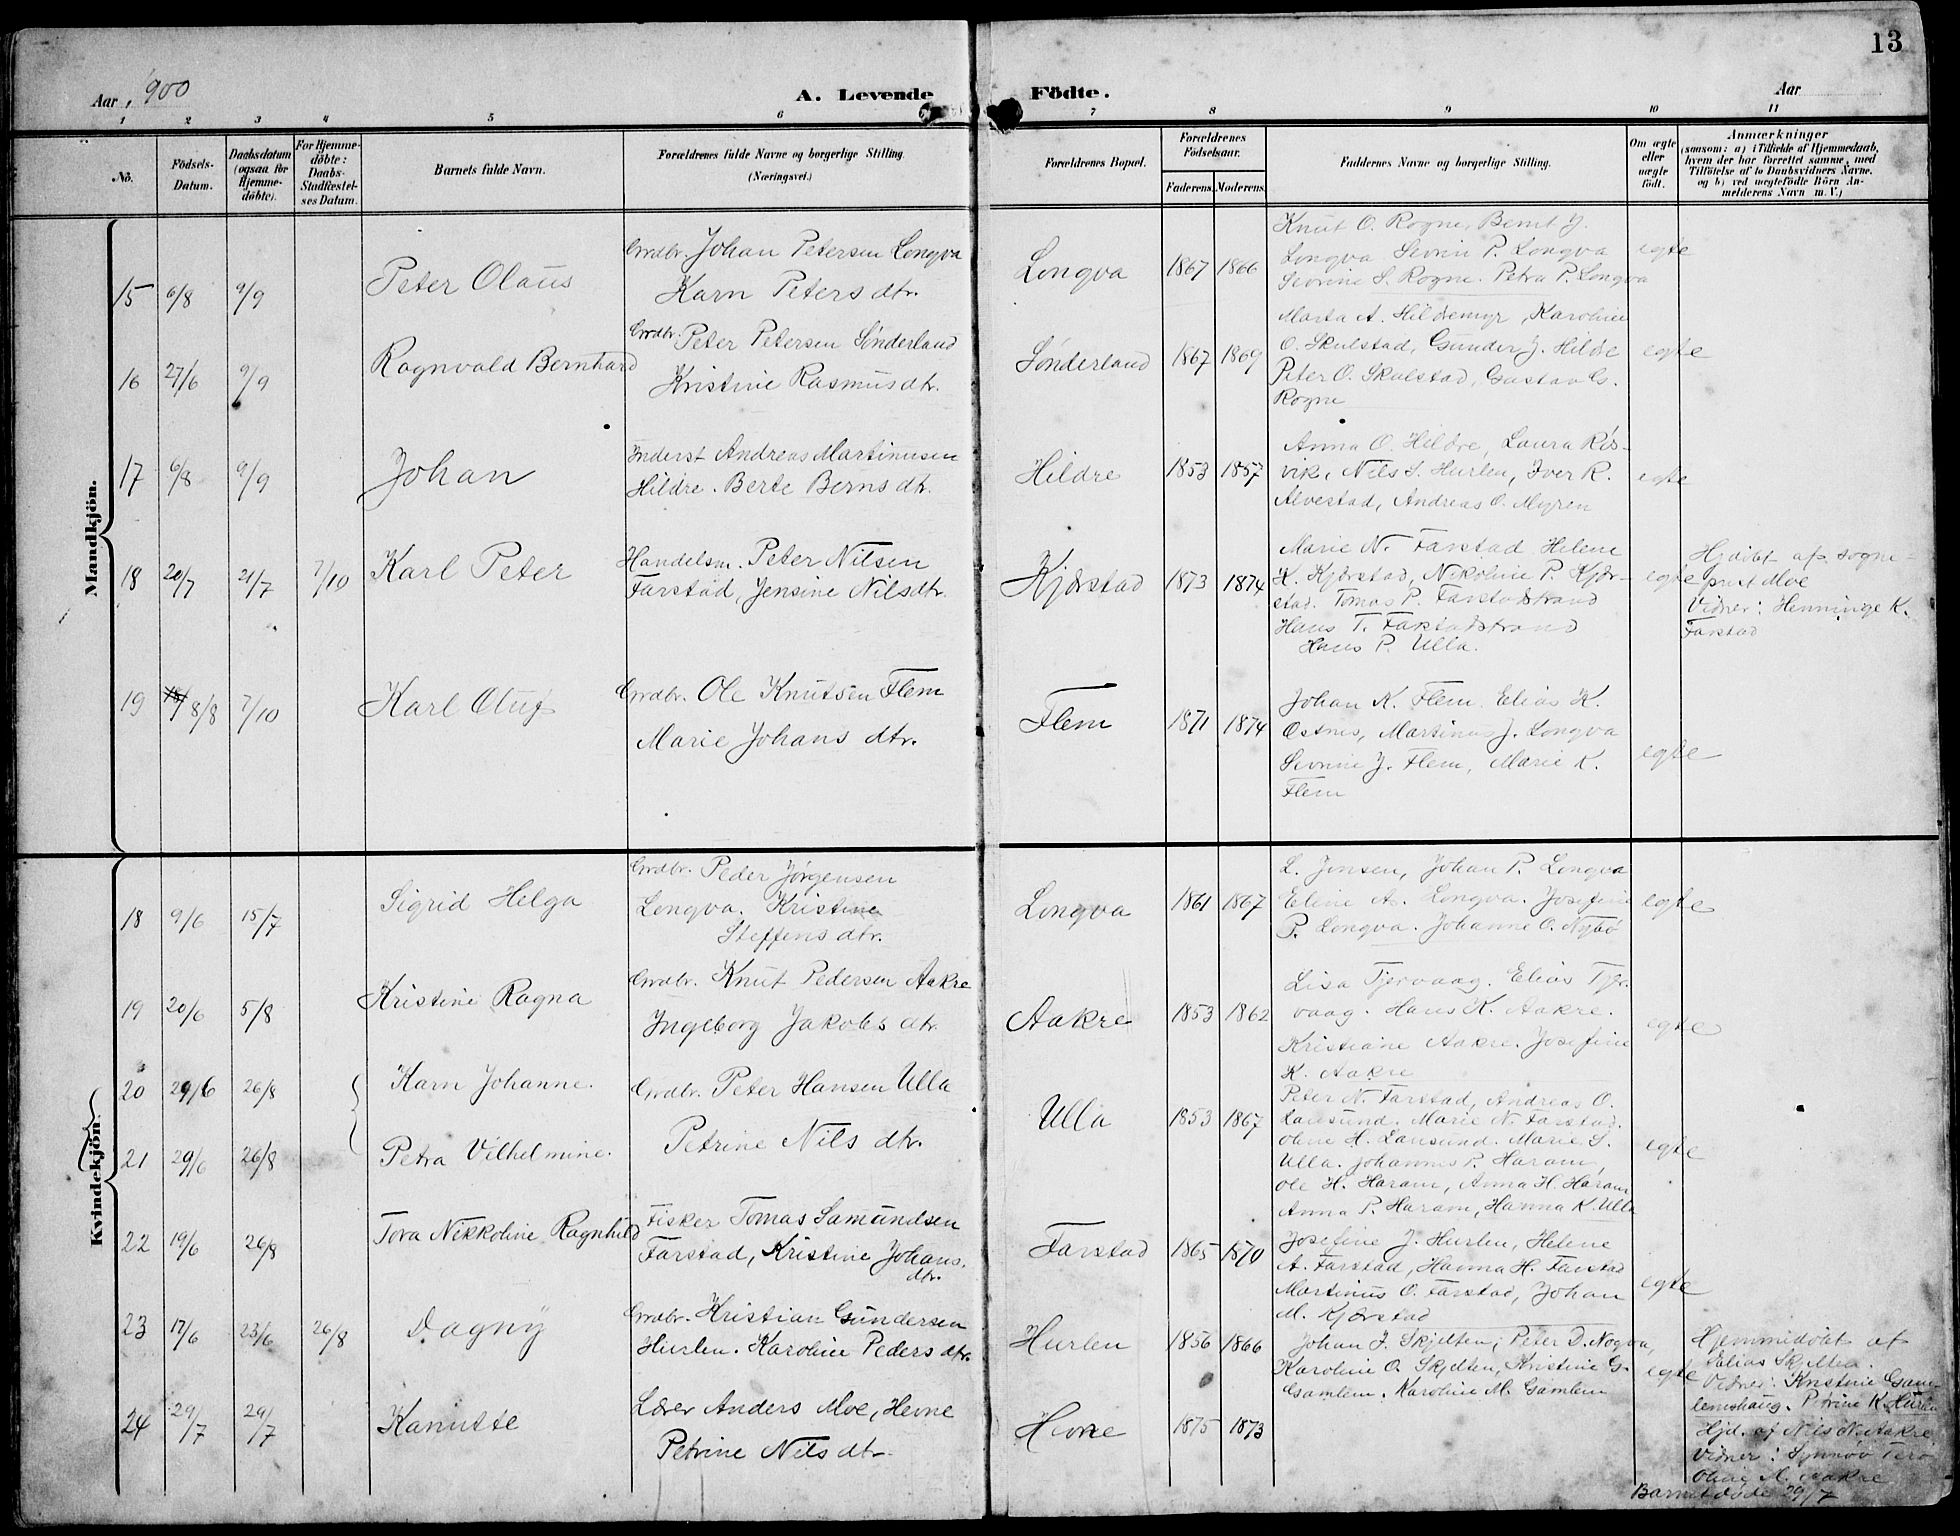 13
Aar 1900
A. Levende
Födte.
Aar
1 2 3 4 5 6 7 8 9 10 11
No.
Födsels-Datum.
Daabsdatum (ogsaa for Hjemme-döbte).
For Hjemme-döbte: Daabs-Stadfæstel-ses Datum.
Barnets fulde Navn.
Forældrenes fulde Navne og borgerlige Stilling.
(Næringsvei.)
Forældrenes Bopæl.
Forældrenes Födselsaar.
Faderens. Moderens.
Faddernes Navne og borgerlige Stilling.
Om ægte eller uægte født.
Anmærkninger
(saasom: a) i Tilfælde af Hjemmedaab,
hvem der har forrettet samme, med
Tilföielse af to Daabsvidners Navne.
og b) ved uægtefödte Börn An-
melderens Navn m. V.)
Mandkjön.
15 6/8 9/9 Peter Olaus
Grdbr. Johan Petersen Longva
Karn Peters dtr.
Longva 1867 1866
Knut O. Rogne, Bernt J.
Longva Sevrin P. Longva
Sevrine S. Rogne. Petra P. Longva
egte
16 27/6 9/9 Ragnvald Bernhard
Grdbr. Peter Petersen Sønderland
Kristine Rasmus dtr.
Sønderland 1867 1869
Marta A. Hildremyr, Karoline
O. Skulstad, Gunder J. Hilde
Peter O. Skulstad, Gustav G.
Rogne
egte
17 6/8 9/9 Johan
Inderst Andreas Martinusen
Hildre. Berte Berns dtr.
Hildre 1853 1857
Anna O. Hildre, Laura Ris-
vik, Nils S. Hurlen, Iver R.
Alvestad, Andreas O. Myren
egte
18 20/7 21/7 7/10 Karl Peter
Handelsm. Peter Nilsen
Farstad, Jensine Nilsdtr.
Kjørstad 1873 1874
Marie N. Farstad Helene
K. Kjørstad, Nikoline P. Kjør-
stad. Tomas P. Farstadstrand
Hans T. Farstadstrand
Hans P. Ulla.
egte
Hjdöbt af sogne-
prest Moe
Vidner: Henninge K.
Farstad
19 8/8 7/10 Karl Oluf
Grdbr. Ole Knutsen Flem
Marie Johans dtr.
Flem 1871 1874
Johan K. Flem. Elias K.
Østnes, Martinus J. Longva
Sevrine J. Flem, Marie K.
Flem
egte
Kvindekjön.
18 9/6 15/7 Sigrid Helga
Grdbr. Peder Jørgensen
Longva. Kristine
Steffens dtr.
Longva 1861 1867
L. Jensen, Johan P. Longva
Eline A. Longva. Josefine
P. Longva. Johanne O. Nybø
egte
19 20/6 5/8 Kristine Ragna
Grdbr. Knut Pedersen Aakre
Ingeborg Jakobs dtr.
Aakre 1853 1862
Lisa Tjervaag. Elias Tjer-
vaag. Hans K. Aakre.
Kristiane Aakre. Josefine
K. Aakre
egte
20 29/6 26/8 Karn Johanne.
21 29/6 26/8 Petra Vilhelmine.
Grdbr. Peter Hansen Ulla
Petrine Nils dtr.
Ulla 1853 1867
Peter N. Farstad, Andreas O.
Lausund. Marie N. Farstad.
Oline H. Lausund. Marie S.
Ulla. Johannes P. Haram,
Ole H. Haram, Anna H. Haram
Anna P. Haram, Hanna K. Ulla
egte
22 19/6 26/8 Tova Nikkoline Ragnhild
Fisker Tomas Samundsen
Farstad, Kristine Johans.
dtr.
Farstad 1865 1870
Josefine J. Hurlen, Helene
A. Farstad, Hanna H. Farstad
Martinus O. Farstad, Johan
M. Kjørstad
egte
23 17/6 23/6 26/8 Dagny
Grdbr. Kristian Gundersen
Hurlen. Karoline Peders dtr.
Hurlen 1856 1866
Johan J. Skjelten, Peter D. Nogva,
Karoline O. Skjelten, Kristine G.
Gamlem. Karoline M. Gamlem
egte
Hjemmedöbt af
Elias Skjelten.
Vidner: Kristine Gam-
lemshaug. Petrine K. Hurlen
24 29/7 29/7 Kanutte
Lærer Anders Moe, Hevne
Petrine Nils dtr.
Hevne 1875 1873
Hjd. af Nils N. Aakre
Vidner: Synnøv
Oline A. Aakre
Barnet døde 29/7